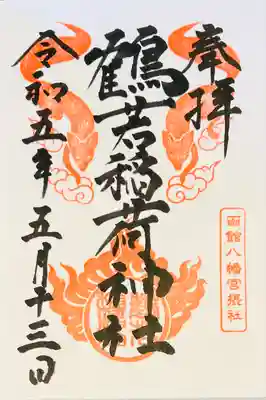 奉拝
鶴若稲荷神社
令和五年五月十三日
函館八幡宮摂社